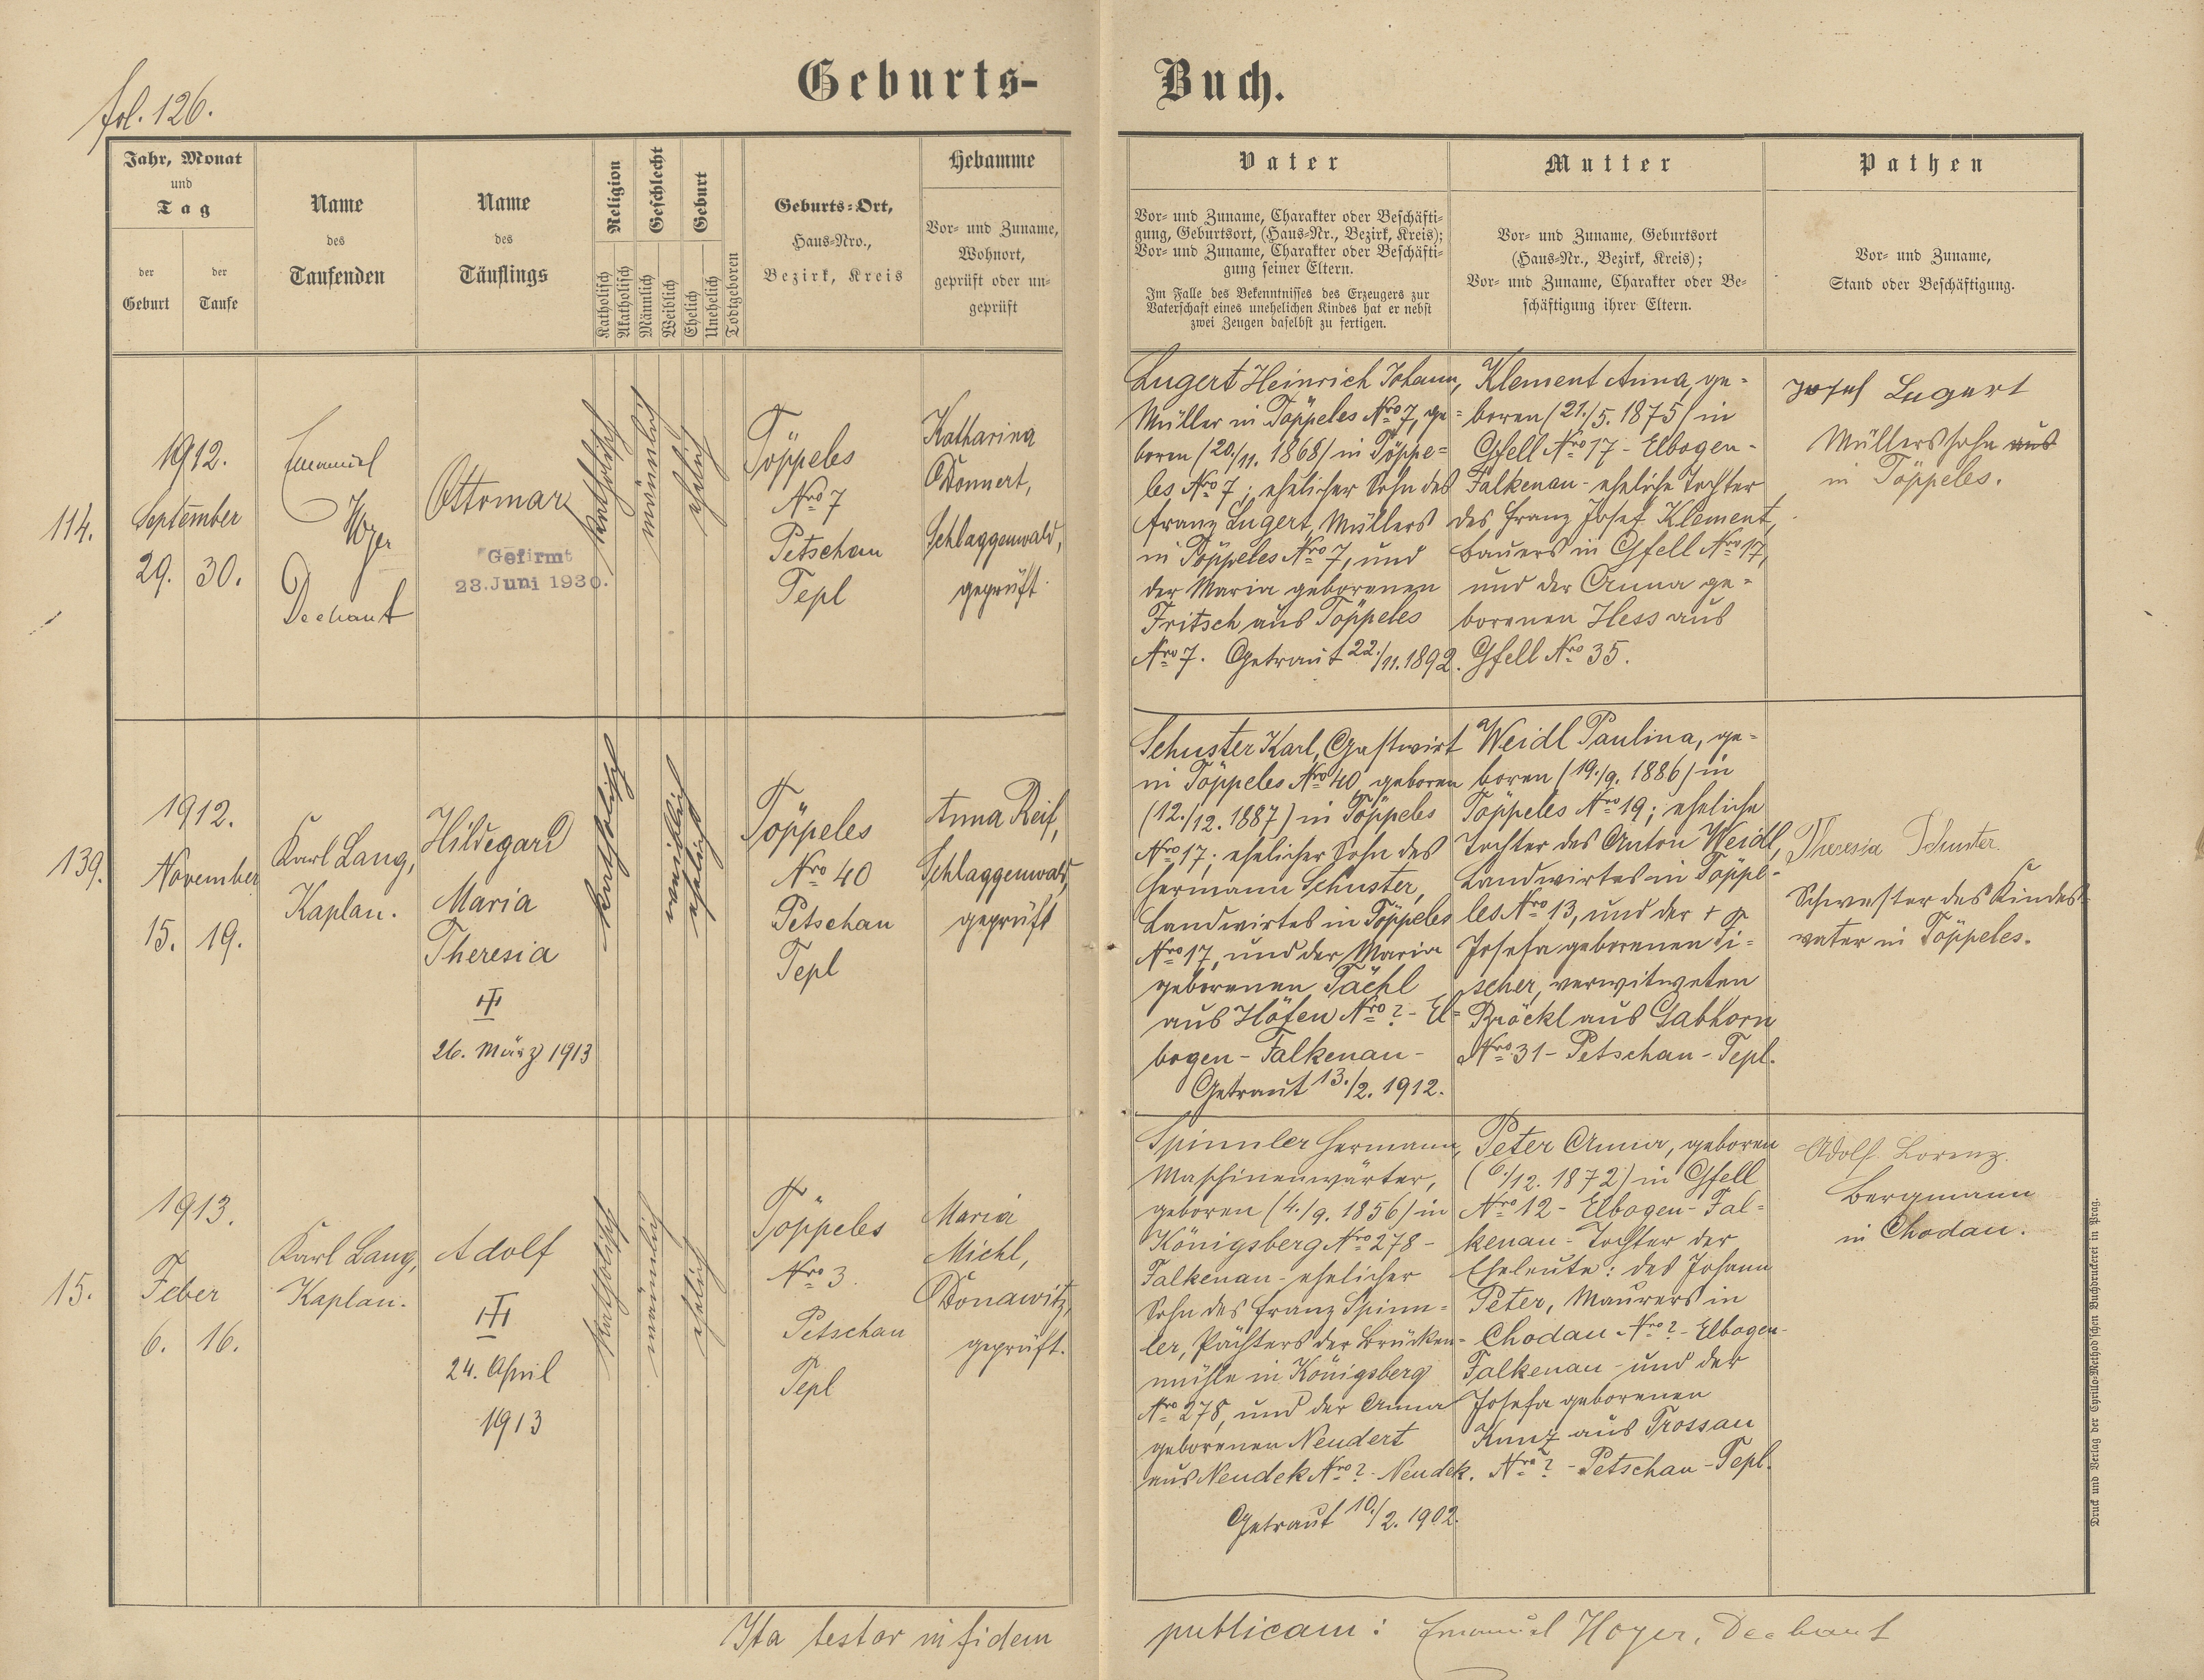 fol. 126.
Geburts-Buch.
Jahr, Monat
und
Tag
der
Geburt
der
Taufe
Name
des
Taufenden
Name
des
Täuflings
Religion
Katholisch
Akatholisch
Geschlecht
Männlich
Weiblich
Geburt
Ehelich
Unehelich
Todtgeboren
Geburts-Ort,
Haus-Nro.,
Bezirk, Kreis
Hebamme
Vor- und Zuname,
Wohnort,
geprüft oder un-
geprüft
Vater
Vor- und Zuname, Charakter oder Beschäfti-
gung, Geburtsort, (Haus-Nr., Bezirk, Kreis);
Vor- und Zuname, Charakter oder Beschäfti-
gung seiner Eltern.
Im Falle des Bekenntnisses des Erzeugers zur
Vaterschaft eines unehelichen Kindes hat er nebst
zwei Zeugen daselbst zu fertigen.
Mutter
Vor- und Zuname, Geburtsort
(Haus-Nr., Bezirk, Kreis);
Vor- und Zuname, Charakter oder Be-
schäftigung ihrer Eltern.
Pathen
Vor- und Zuname,
Stand oder Beschäftigung.
114.
1912.
September
29. 30.
Emanuel
Hoyer
Dechant
Ottomar
Gefirmt
28. Juni 1930.
katholisch
männlich
ehelich
Töppeles
Nro 7
Petschau
Tepl
Katharina
Donnert,
Schlaggenwald,
geprüft
Lugert Heinrich Johann,
Müller in Töppeles Nro 7, ge=
boren (20./11. 1868) in Töppe=
les Nro 7; ehelicher Sohn des
Franz Lugert, Müllers
in Töppeles Nro 7, und
der Maria geborenen
Fritsch aus Töppeles
Nro 7. Getraut 22./11. 1892.
Klement Anna, ge=
boren (21./5. 1875) in
Gfell Nro 17 - Elbogen-
Falkenau - eheliche Tochter
des Franz Josef Klement,
Bauers in Gfell Nro 17,
und der Anna ge=
borenen Hess aus
Gfell Nro 35.
Josef Lugert
Müllerssohn aus
in Töppeles.
139.
1912.
November
15. 19.
Karl Lang,
Kaplan.
Hildegard
Maria
Theresia
26. März 1913
katholisch
weiblich
ehelich
Töppeles
Nro 40
Petschau
Tepl
Anna Reif,
Schlaggenwald,
geprüft
Schuster Karl, Gastwirt
in Töppeles Nro 40, geboren
(12./12. 1887) in Töppeles
Nro 17; ehelicher Sohn des
Hermann Schuster,
Landwirtes in Töppeles
Nro 17, und der Maria
geborenen Tächl
aus Höfen Nro ? - El=
bogen - Falkenau -
Getraut 13./2. 1912.
Weidl Paulina, ge=
boren (19./9. 1886) in
Töppeles Nro 19; eheliche
Tochter des Anton Weidl,
Landwirtes in Töppe-
les Nro 13, und der †
Josefa geborenen Ti=
scher, verwitweten
Bröckl aus Gabhorn
Nro 31 - Petschau - Tepl.
Theresia Schuster
Schwester des Kindes-
vater in Töppeles.
15.
1913.
Feber
6. 16.
Karl Lang,
Kaplan.
Adolf
24. April
1913
katholisch
männlich
ehelich
Töppeles
Nro 3.
Petschau
Tepl
Maria
Michl,
Donawitz,
geprüft.
Spinnler Hermann,
Maschinenwärter,
geboren (4./9. 1856) in
Königsberg Nro 278 -
Falkenau - ehelicher
Sohn des Franz Spinn=
ler, Pächters der Brücken=
mühle in Königsberg
Nro 278, und der Anna
geborenen Neudert
aus Neudek Nro ? - Neudek.
Getraut 10./2. 1902.
Peter Anna, geboren
(6./12. 1872) in Gfell
Nro 12 - Elbogen - Fal=
kenau - Tochter der
Eheleute: des Johann
Peter, Maurers in
Chodau Nro ? - Elbogen-
Falkenau - und der
Josefa geborenen
Kunz aus Trossau
Nro ? - Petschau - Tepl.
Adolf Lorenz.
Bergmann
in Chodau.
Ita testor in fidem publicam: Emanuel Hoyer, Dechant
Druck und Verlag der Cyrillo-Method'schen Buchdruckerei in Prag.